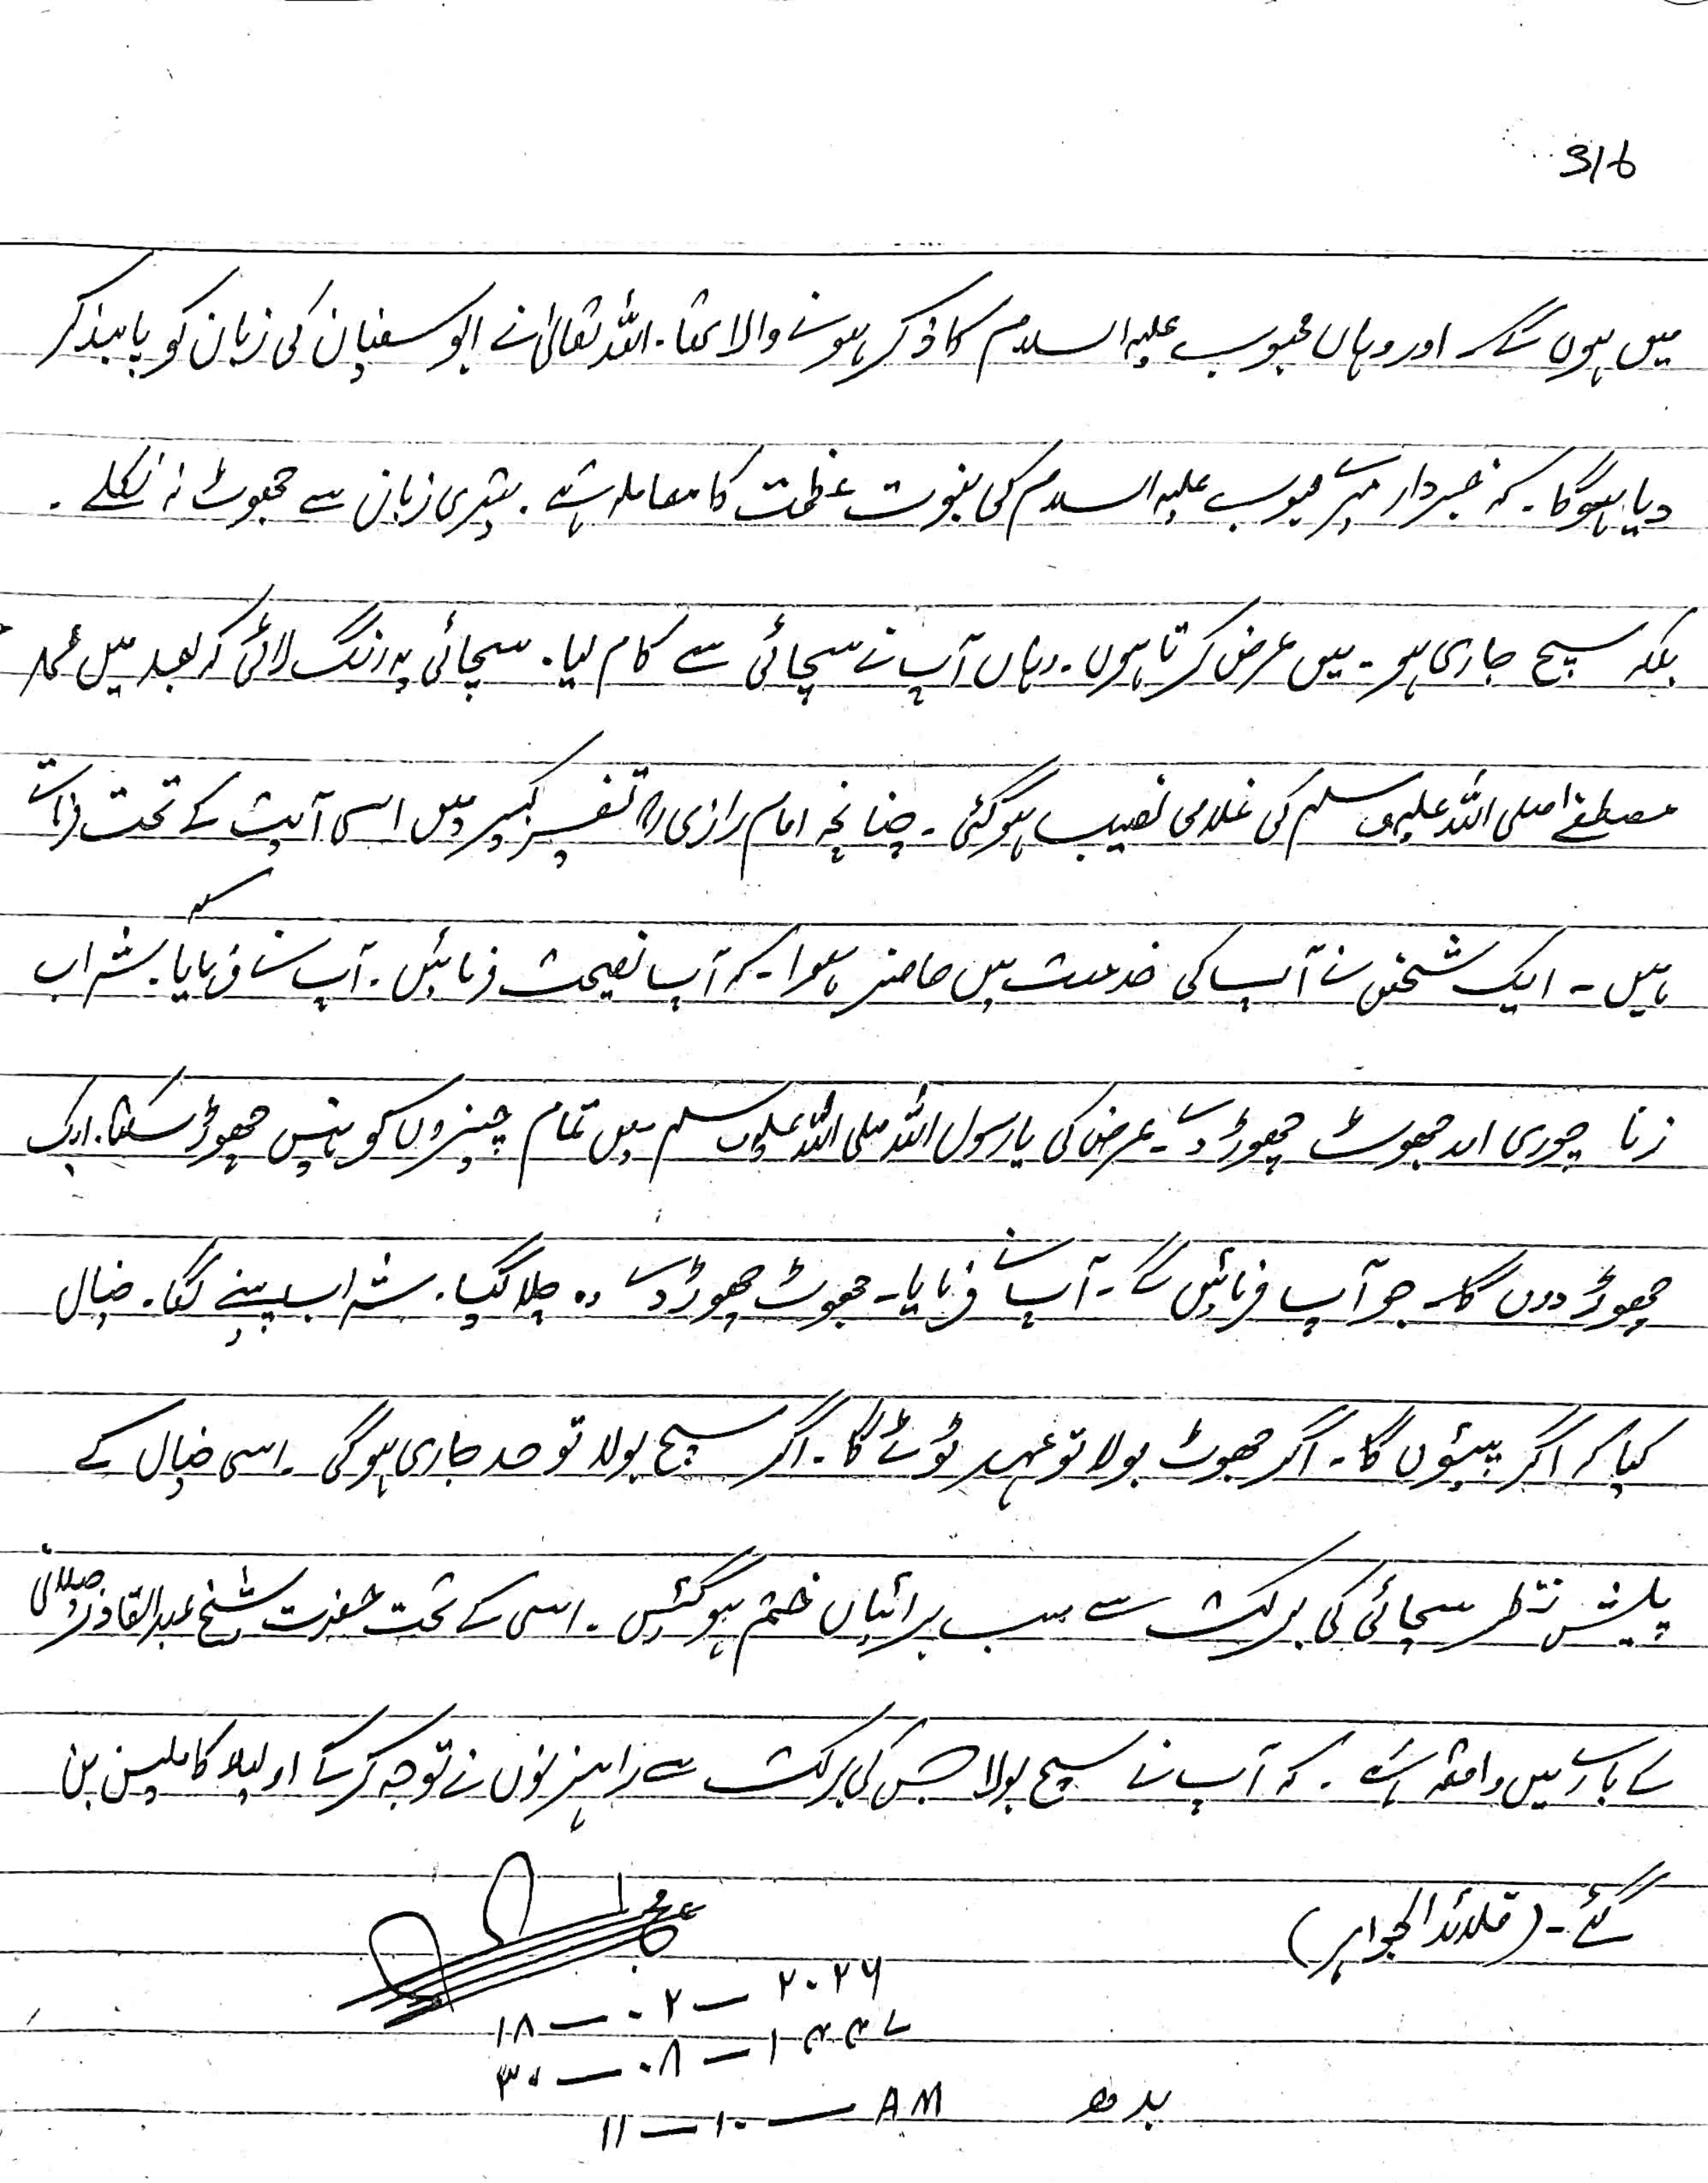 316
میں ہوں گے اور وہاں محبوب علیہ السلام کا ذکر ہونے والا تھا۔ اللہ تعالیٰ نے ابو سفیان کی زبان کو پابند کر
دیا ہوگا۔ کہ خبردار میرے محبوب علیہ السلام کی نبوت عظمت کا معاملہ ہے۔ تیری زبان سے جھوٹ نہ نکلے۔
بلکہ سچ جاری ہو۔ میں عرض کرتا ہوں۔ وہاں آپ نے سچائی سے کام لیا۔ سچائی یہ رنگ لائی کہ بعد میں محمد
مصطفےٰ صلی اللہ علیہ وسلم کی غلامی نصیب ہوگئی۔ چنانچہ امام رازی رح تفسیر کبیر میں اسی آیت کے تحت فرماتے
ہیں۔ کہ ایک شخص نے آپ کی خدمت میں حاضر ہوا۔ کہ آپ نصیحت فرمائیں۔ آپ نے فرمایا۔ شراب
زنا چوری اور جھوٹ چھوڑ دے۔ عرض کی یا رسول اللہ صلی اللہ علیہ وسلم میں تمام چیزوں کو نہیں چھوڑ سکتا۔ ایک
چھوڑ دوں گا۔ جو آپ فرمائیں گے۔ آپ نے فرمایا۔ جھوٹ چھوڑ دے وہ چلا گیا۔ شراب پینے لگا۔ خیال
کیا کہ اگر پیئوں گا۔ اگر جھوٹ بولا تو عہد ٹوٹے گا۔ اگر سچ بولا تو حد جاری ہوگی۔ اسی خیال کے
پیش نظر سچائی کی برکت سے سب برائیاں ختم ہوگئیں۔ اسی کے تحت حضرت شیخ عبدالقادر جیلانی
کے بارے میں واقعہ ہے۔ کہ آپ نے سچ بولا جس کی برکت سے راہزنوں نے توجہ کرکے اولیاء کاملین بن
گئے۔ (قلائد الجواہر)
۱۸ — ۰۲ — ۲۰۲۶
۳۰ — ۰۸ — ۱۴۴۷
۱۱ — ۱۰ — AM بدھ